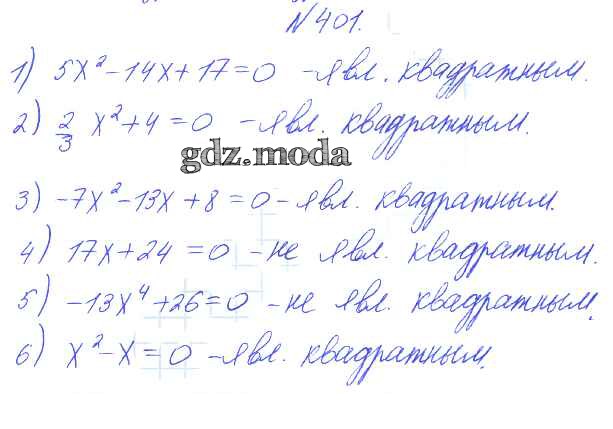 №401.
1) 5x² - 14x + 17 = 0 - явл. квадратным.
2) 2/3 x² + 4 = 0 - явл. квадратным.
gdz.moda
3) -7x² - 13x + 8 = 0 - явл. квадратным.
4) 17x + 24 = 0 - не явл. квадратным.
5) -13x⁴ + 26 = 0 - не явл. квадратным.
6) x² - x = 0 - явл. квадратным.